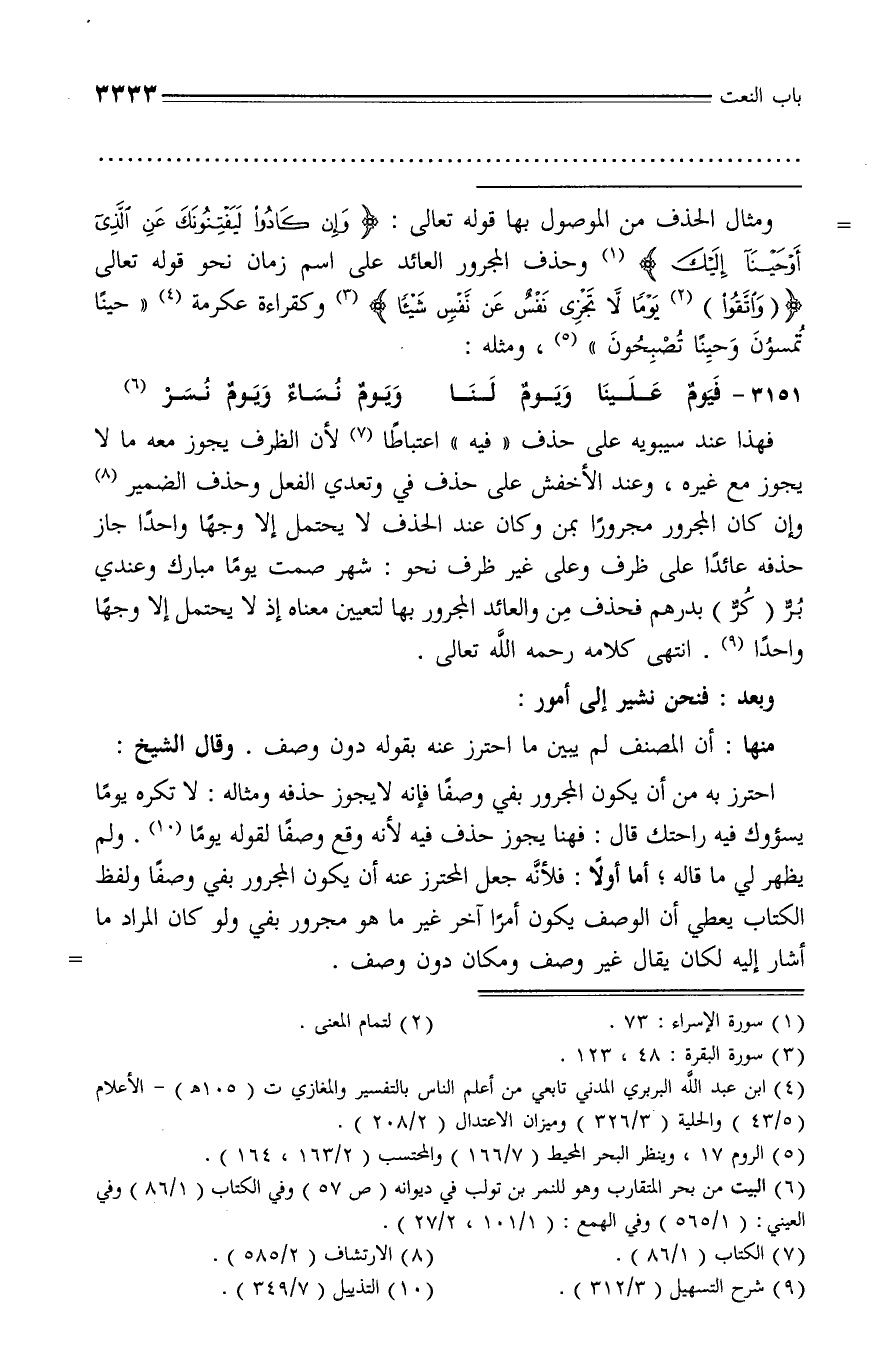 باب النعت ٣٣٣٣
= ومثال الحذف من الموصول بها قوله تعالى : ﴿ وَإِن كَادُوا۟ لَيَفْتِنُونَكَ عَنِ ٱلَّذِىٓ
أَوْحَيْنَآ إِلَيْكَ ﴾ (١) وحذف المجرور العائد على اسم زمان نحو قوله تعالى
﴿ ( وَٱتَّقُوا۟ ) (٢) يَوْمًا لَّا تَجْزِى نَفْسٌ عَن نَّفْسٍ شَيْـًٔا ﴾ (٣) وكقراءة عكرمة (٤) « حينًا
تُمسوُنَ وَحِينًا تُصْبِحُونَ » (٥) ، ومثله :
٣١٥١ - فَيَومٌ عَـلَـينَا وَيَـومٌ لَـنَـا وَيَـومٌ نُـسَـاءٌ وَيَـومٌ نُـسَـرْ (٦)
فهذا عند سيبويه على حذف « فيه » اعتباطًا (٧) لأن الظرف يجوز معه ما لا
يجوز مع غيره ، وعند الأخفش على حذف في وتعدي الفعل وحذف الضمير (٨)
وإن كان المجرور مجرورًا بمن وكان عند الحذف لا يحتمل إلا وجهًا واحدًا جاز
حذفه عائدًا على ظرف وعلى غير ظرف نحو : شهر صمت يومًا مبارك وعندي
بُرٌّ ( كُرٌّ ) بدرهم فحذف مِن والعائد المجرور بها لتعيين معناه إذ لا يحتمل إلا وجهًا
واحدًا (٩) . انتهى كلامه رحمه اللَّه تعالى .
وبعد : فنحن نشير إلى أمور :
منها : أن المصنف لم يبين ما احترز عنه بقوله دون وصف . وقال الشيخ :
احترز به من أن يكون المجرور بفي وصفًا فإنه لايجوز حذفه ومثاله : لا تكره يومًا
يسؤوك فيه راحتك قال : فهنا يجوز حذف فيه لأنه وقع وصفًا لقوله يومًا (١٠) . ولم
يظهر لي ما قاله ؛ أما أولًا : فلأنَّه جعل المحترز عنه أن يكون المجرور بفي وصفًا ولفظ
الكتاب يعطي أن الوصف يكون أمرًا آخر غير ما هو مجرور بفي ولو كان المراد ما
أشار إليه لكان يقال غير وصف ومكان دون وصف . =
(١) سورة الإسراء : ٧٣ . (٢) لتمام المعنى .
(٣) سورة البقرة : ٤٨ ، ١٢٣ .
(٤) ابن عبد اللَّه البربري المدني تابعي من أعلم الناس بالتفسير والمغازي ت ( ١٠٥هـ ) - الأعلام
( ٤٣/٥ ) والحلية ( ٣٢٦/٣ ) وميزان الاعتدال ( ٢٠٨/٢ ) .
(٥) الروم ١٧ ، وينظر البحر المحيط ( ١٦٦/٧ ) والمحتسب ( ١٦٣/٢ ، ١٦٤ ) .
(٦) البيت من بحر المتقارب وهو للنمر بن تولب في ديوانه ( ص ٥٧ ) وفي الكتاب ( ٨٦/١ ) وفي
العيني : ( ٥٦٥/١ ) وفي الهمع : ( ١٠١/١ ، ٢٧/٢ ) .
(٧) الكتاب ( ٨٦/١ ) . (٨) الارتشاف ( ٥٨٥/٢ ) .
(٩) شرح التسهيل ( ٣١٢/٣ ) . (١٠) التذييل ( ٣٤٩/٧ ) .